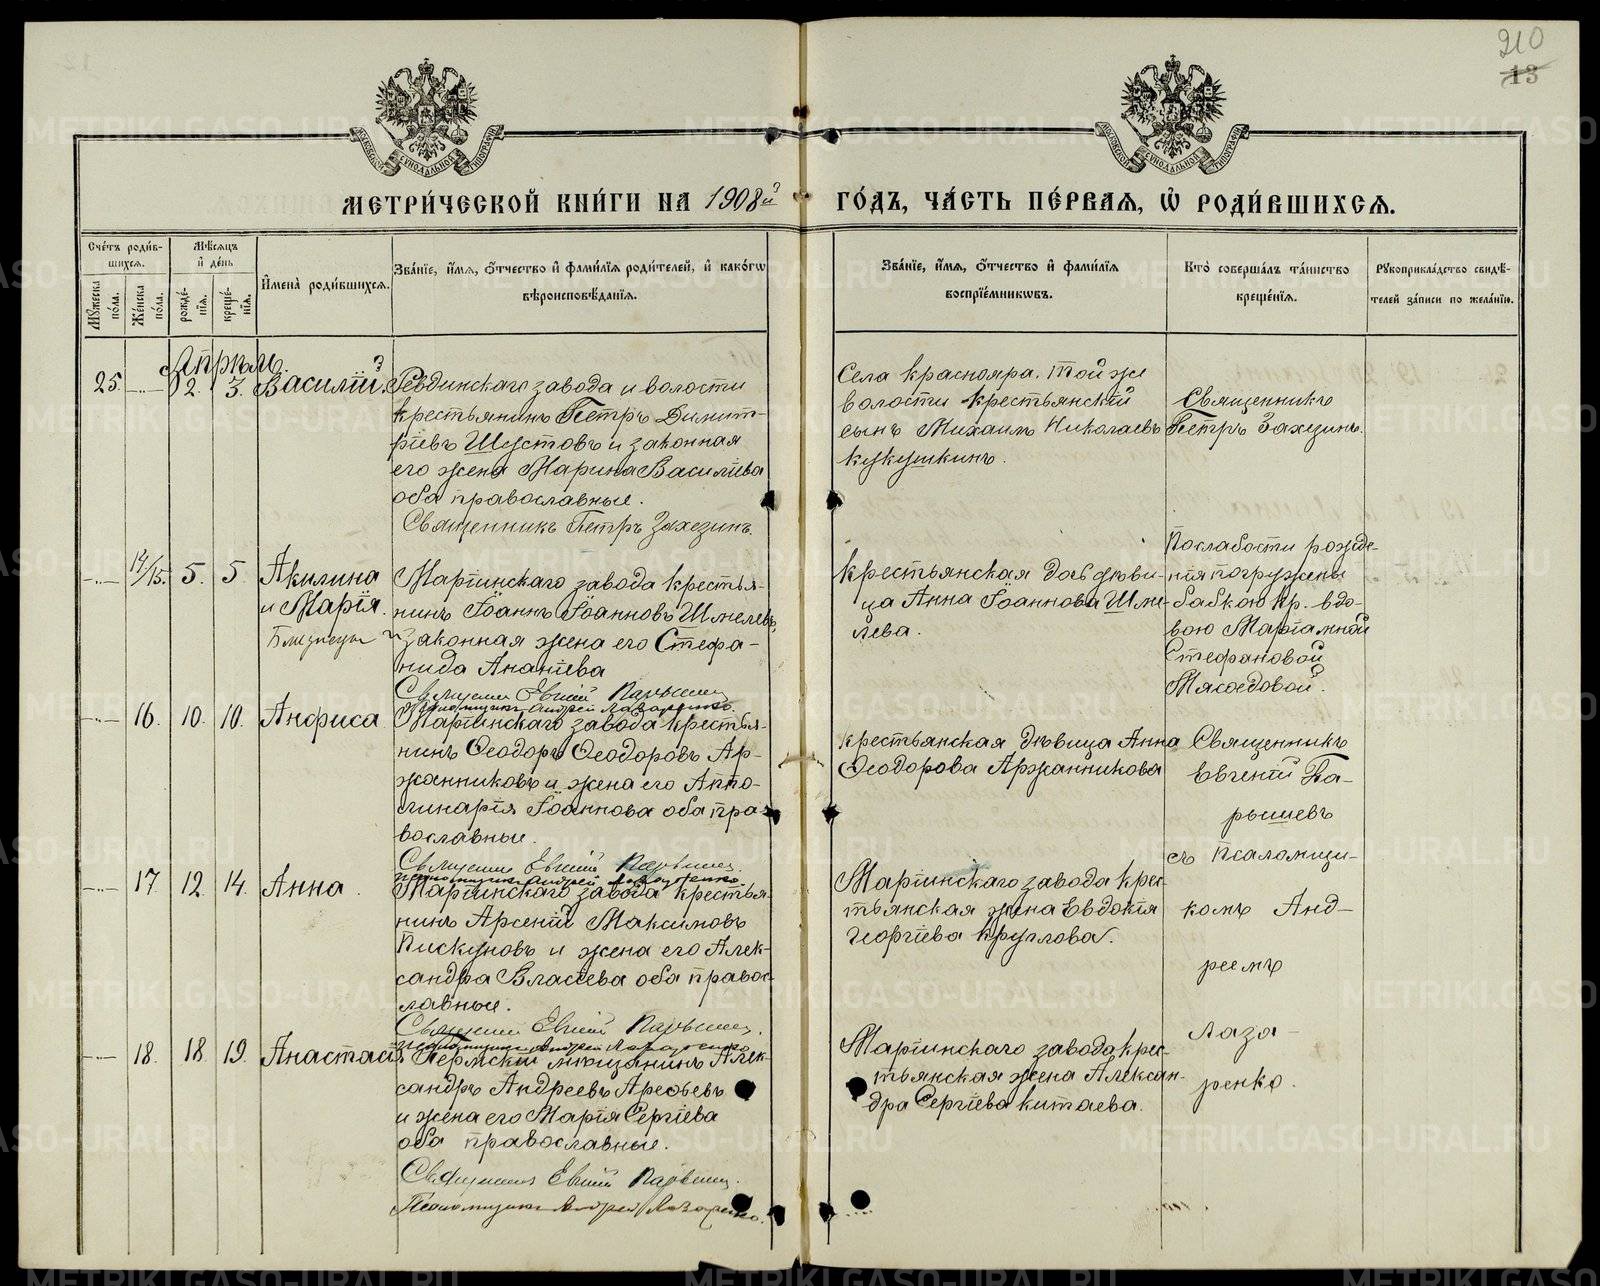 210
13
МЕТРИ́ЧЕСКОЙ КНИ́ГИ НА 1908й ГО́ДЪ, ЧА́СТЬ ПЕ́РВАЯ, Ѿ РОДИ́ВШИХСЯ.
Счетъ родив-
шихся.
Мужеска пола.
Женска пола.
Мѣсяцъ и день
рожде-
нія.
креще-
нія.
Имена родившихся.
Званіе, имя, отчество и фамилія родителей, и какогѡ
вѣроисповѣданія.
Званіе, имя, отчество и фамилія
воспріемникѡвъ.
Кто совершалъ таинство
крещенія.
Рукоприкладство свидѣ-
телей записи по желанію.
Апрѣль.
25. 2. 3. Василій.
Ревдинскаго завода и волости
крестьянинъ Петръ Димит-
ріевъ Шустовъ и законная
его жена Марина Василіева
оба православные.
Священникъ Петръ Захезинъ.
Села Краснояра. той же
волости крестьянскій
сынъ Михаилъ Николаевъ
Кукушкинъ.
Священникъ
Петръ Захезинъ.
14/15. 5. 5. Акилина
и Марія.
Близнецы
Маріинскаго завода крестья-
нинъ Іоаннъ Іоанновъ Шмелевъ,
и законная жена его Стефа-
нида Ананіева
Священник Евгеній Парышев
Псаломщикъ Андрей Лазаренко.
Крестьянская дочь дѣви-
ца Анна Іоаннова Шме-
лева.
По слабости рожде-
нія погружены
бабкою кр. вдо-
вою Маріамной
Стефановой
Мясоедовой.
16. 10. 10. Анфиса
Маріинскаго завода крестья-
нинъ Ѳеодоръ Ѳеодоровъ Ар-
жанниковъ и жена его Аппо-
линарія Іоаннова оба пра-
вославные.
Священник Евгеній Парышев.
Псаломщикъ Андрей Лазаренко.
Крестьянская дѣвица Анна
Ѳеодорова Аржанникова
Священникъ
Евгеній Па-
рышевъ
съ псаломщи-
комъ Анд-
реемъ
Лаза-
ренко.
17. 12. 14. Анна.
Маріинскаго завода крестья-
нинъ Арсеній Максимовъ
Пискуновъ и жена его Алек-
сандра Власіева оба правос-
лавные.
Священник Евгеній Парышев.
Псаломщикъ Андрей Лазаренко
Маріинскаго завода крес-
тьянская жена Евдокія
Георгіева Круглова.
18. 18. 19. Анастасія
Пермскій мѣщанинъ Алек-
сандръ Андреевъ Арефьевъ
и жена его Марія Сергіева
оба православные.
Священник Евгеній Парышев.
Псаломщикъ Андрей Лазаренко.
Маріинскаго завода крес-
тьянская жена Алексан-
дра Сергіева Китаева.
METRIKI.GASO-URAL.RU